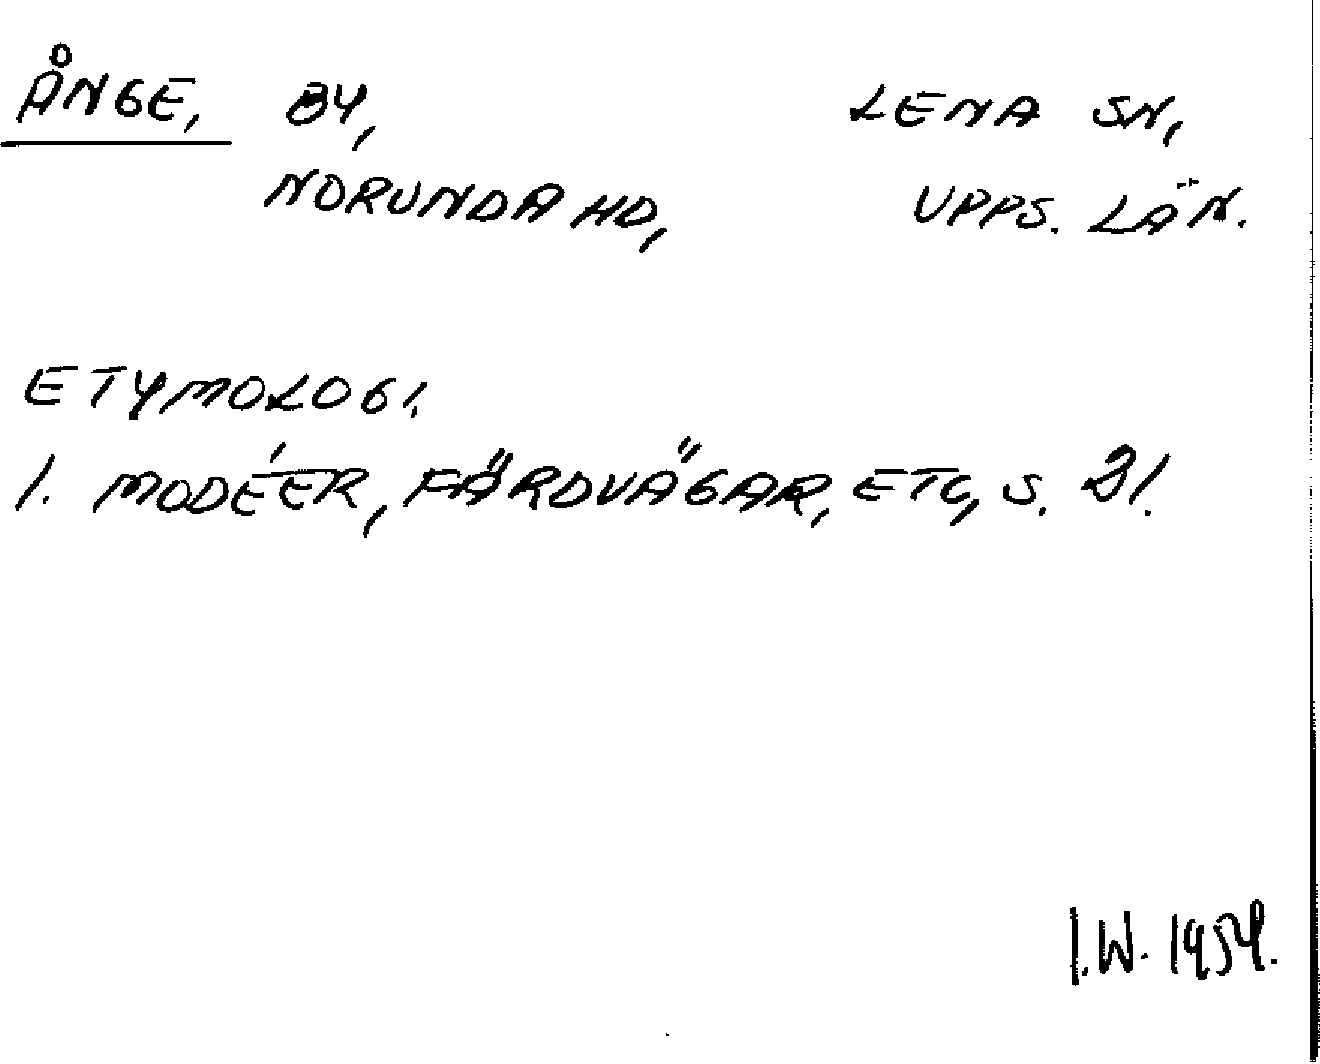 ÅNGE, BY, LENA SN,
NORUNDA HD, UPPS. LÄN.
ETYMOLOGI.
1. MODÉER, FÄRDVÄGAR, ETC, S. 21.
I.W. 1954.